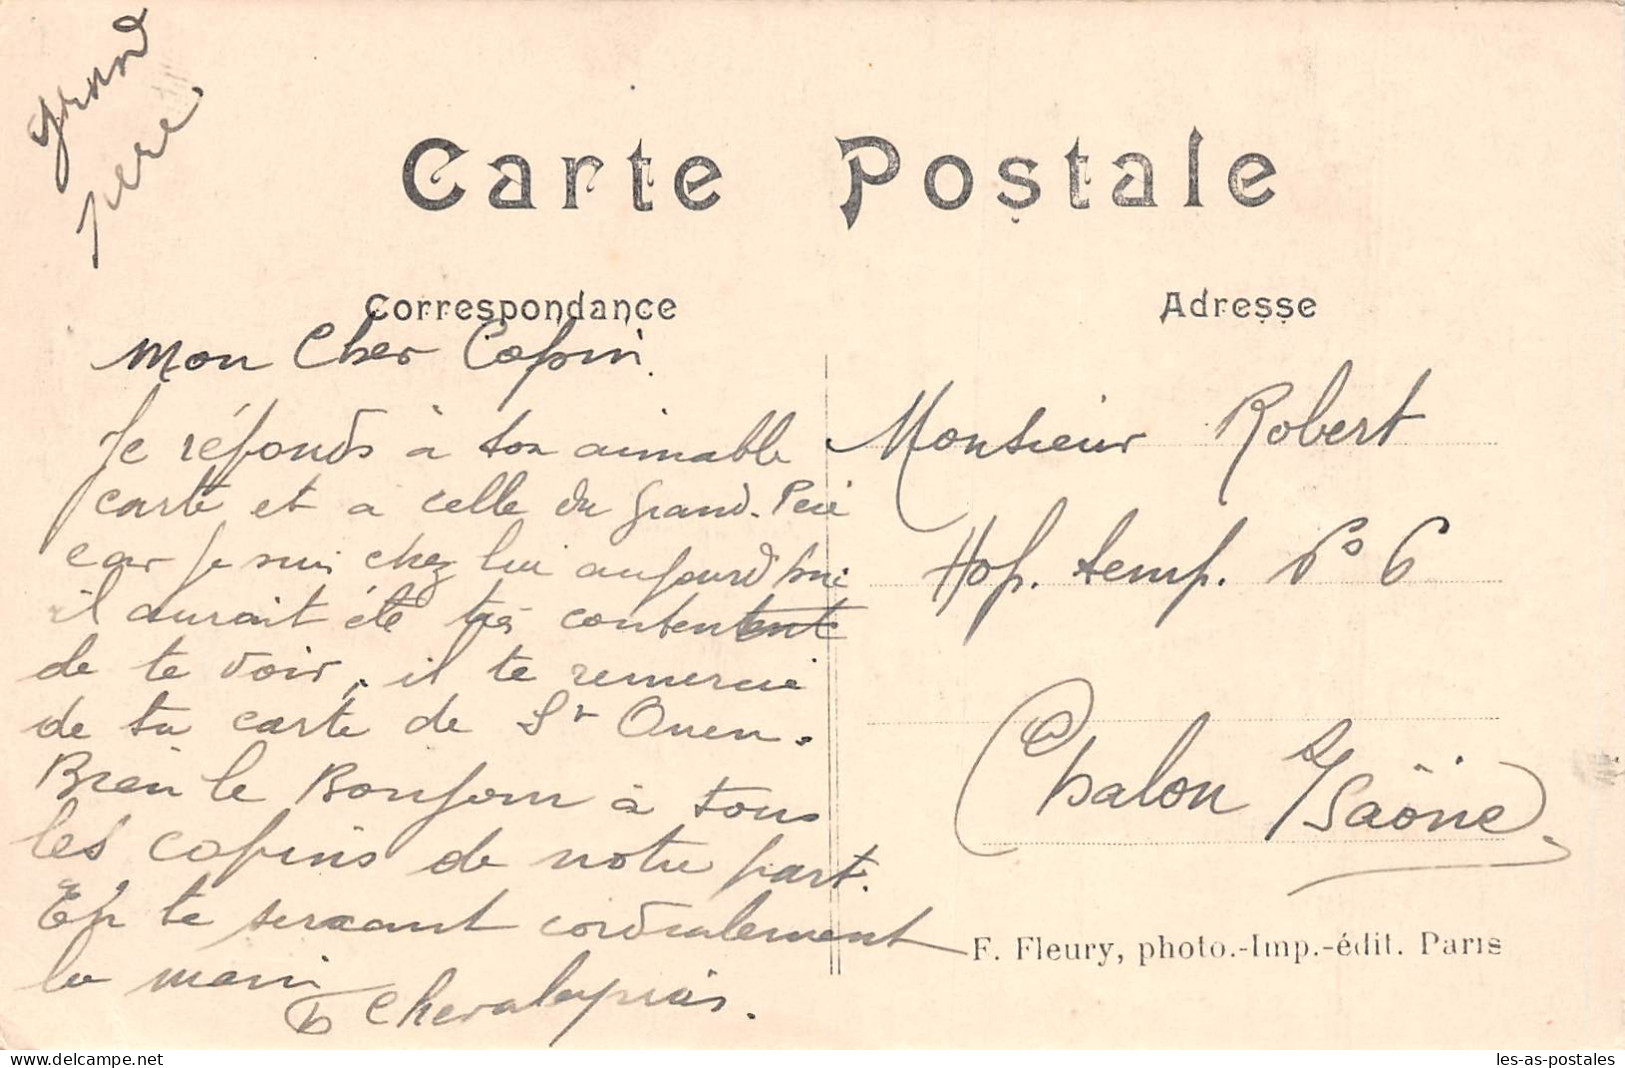 Grand
père
Carte Postale
Correspondance
Mon Cher Copin.
Je réponds à ton aimable
carte et a celle du Grand-Père
car Je suis chez lui aujourd'hui
il aurait été très content
de te voir, il te remercie
de ta carte de St Ouen.
Bien le Bonjour à tous
les copins de notre part.
En te serrant cordialement
la main
Adresse
Monsieur Robert
Hop. temp. No 6
Chalon s/Saône
F. Fleury, photo.-Imp.-édit. Paris
les-as-postales